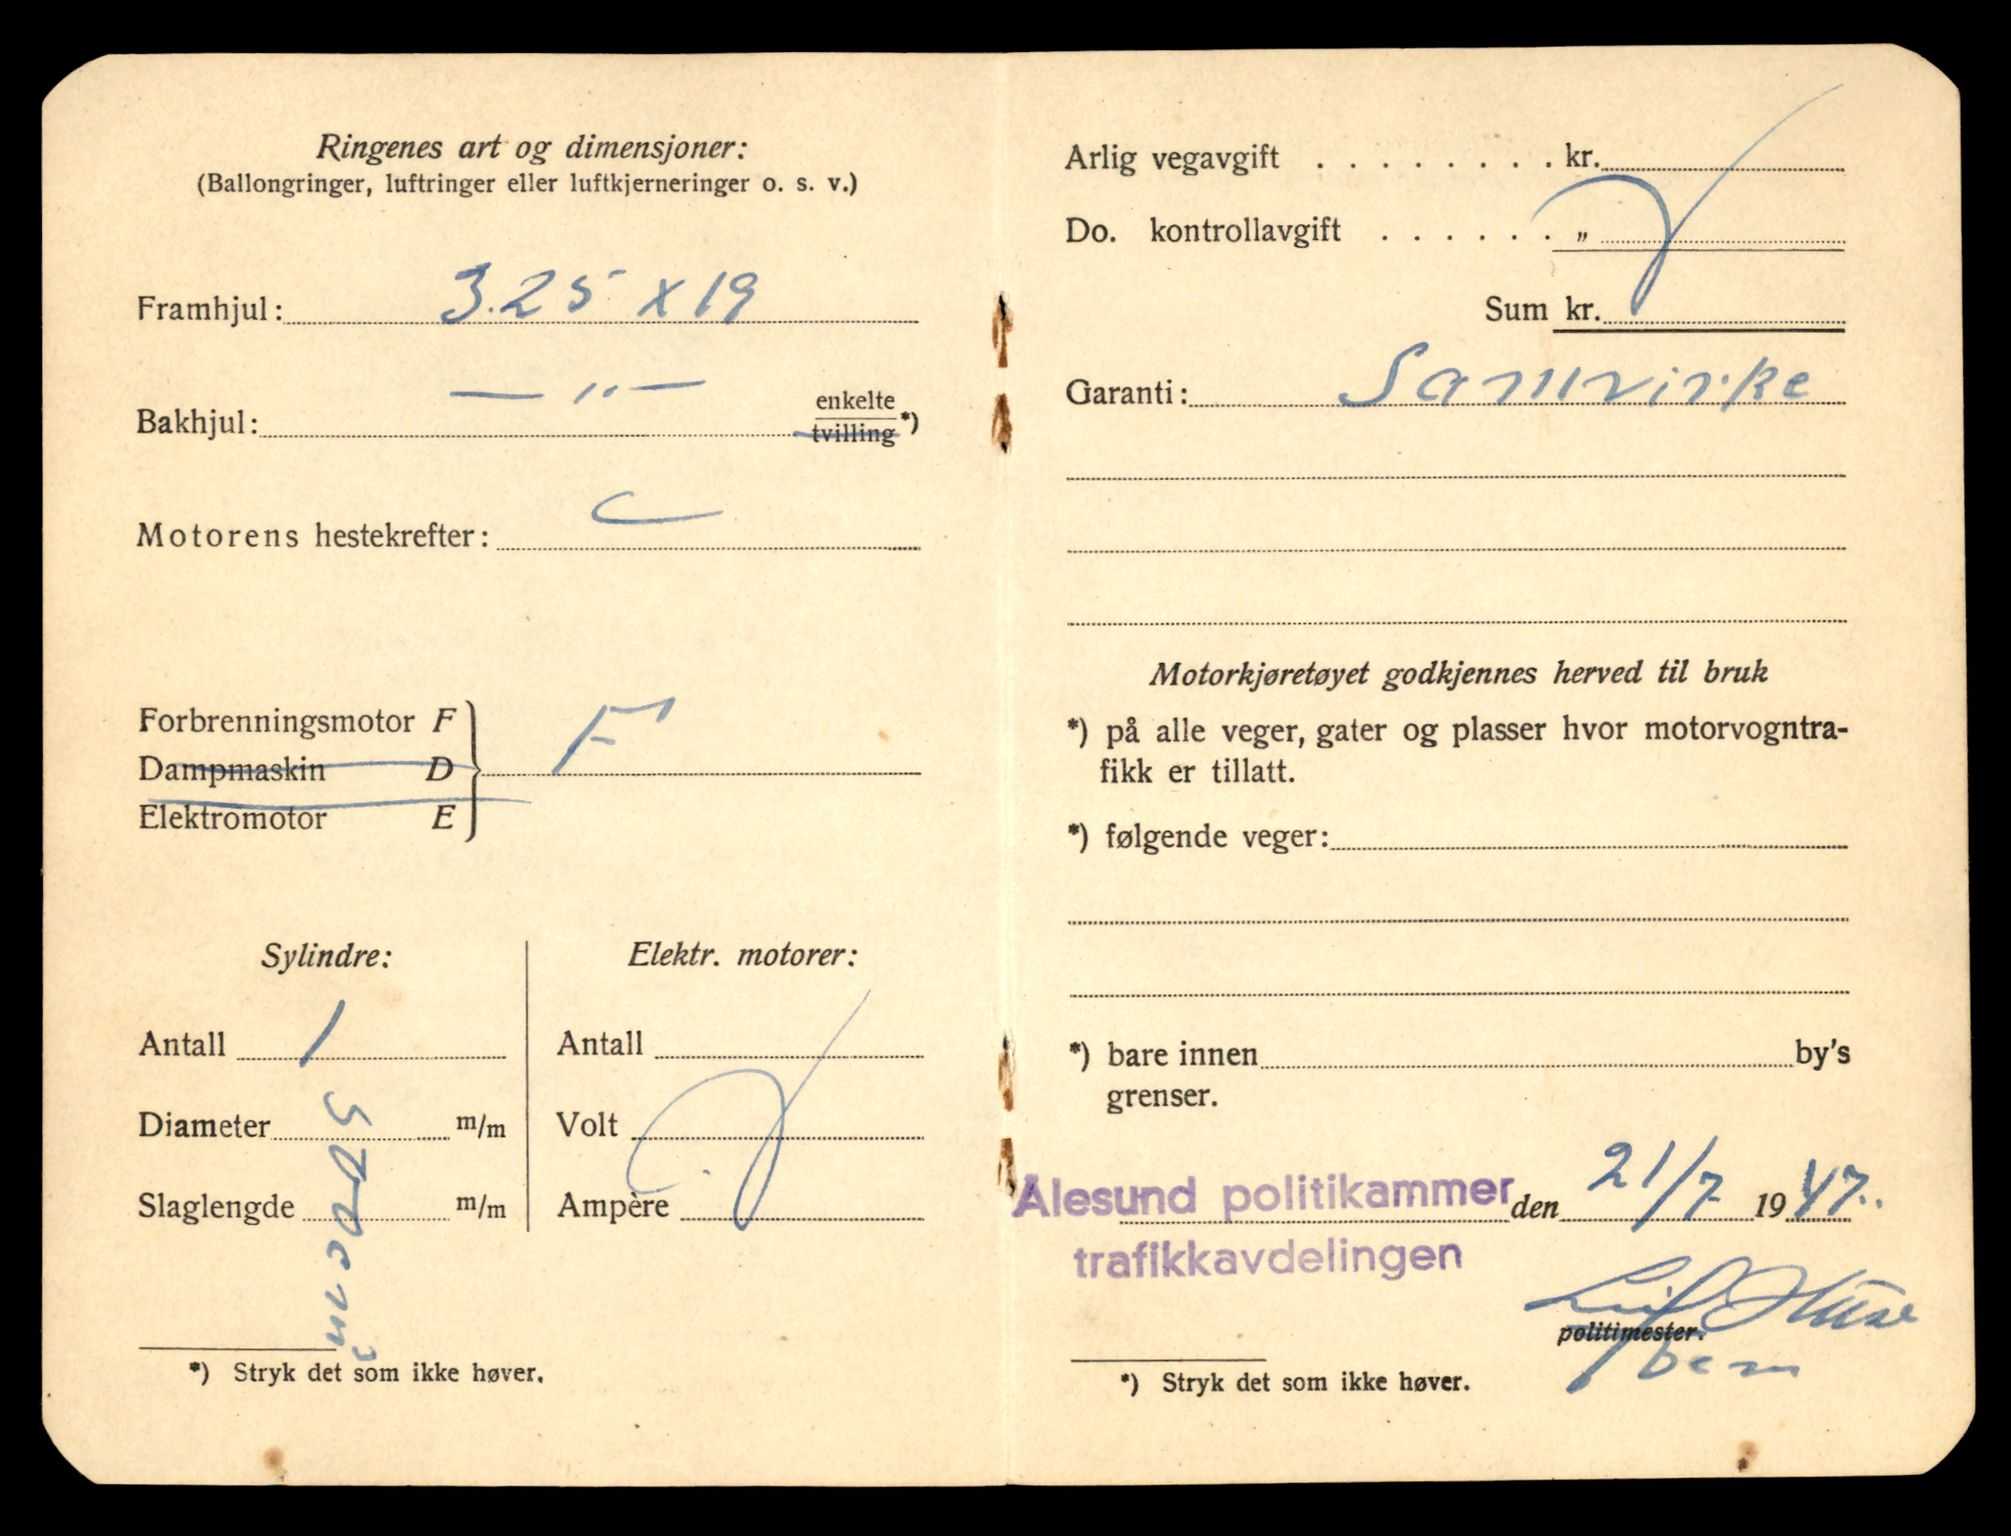 Ringenes art og dimensjoner:
(Ballongringer, luftringer eller luftkjerneringer o. s. v.)
Framhjul: 3.25 x 19
Bakhjul: — „ — enkelte
tvilling *)
Motorens hestekrefter:
Forbrenningsmotor F
Dampmaskin D
Elektromotor E
F
Sylindre:
Antall 1
Diameter m/m
Slaglengde m/m
Elektr. motorer:
Antall
Volt
Ampère
*) Stryk det som ikke høver.
Arlig vegavgift . . . . . . . . kr.
Do. kontrollavgift . . . . . . „
Sum kr.
Garanti: Samvirke
Motorkjøretøyet godkjennes herved til bruk
*) på alle veger, gater og plasser hvor motorvogntra-
fikk er tillatt.
*) følgende veger:
*) bare innen by's
grenser.
Ålesund politikammer den 21/7 1947.
trafikkavdelingen
politimester.
*) Stryk det som ikke høver.